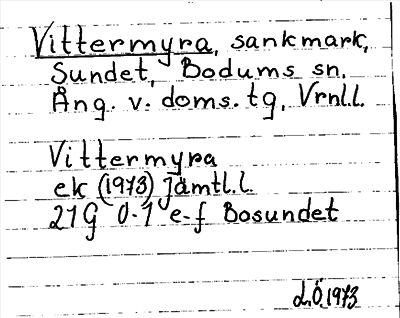 Vittermyra, sankmark,
Sundet, Bodums sn.
Ång. v. doms. tg, Vrnl.l.
Vittermyra
ek (1973) Jämtl.l.
21G 0-1 e-f Bosundet
L.Ö.1973